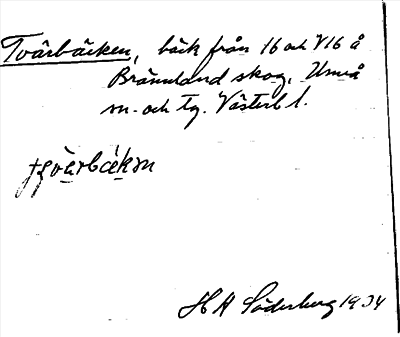 Tvärbäcken, bäck från 16 och V16 å
Brännland skog, Umeå
sn. och tg. Västerb l.
H A Söderberg 1934